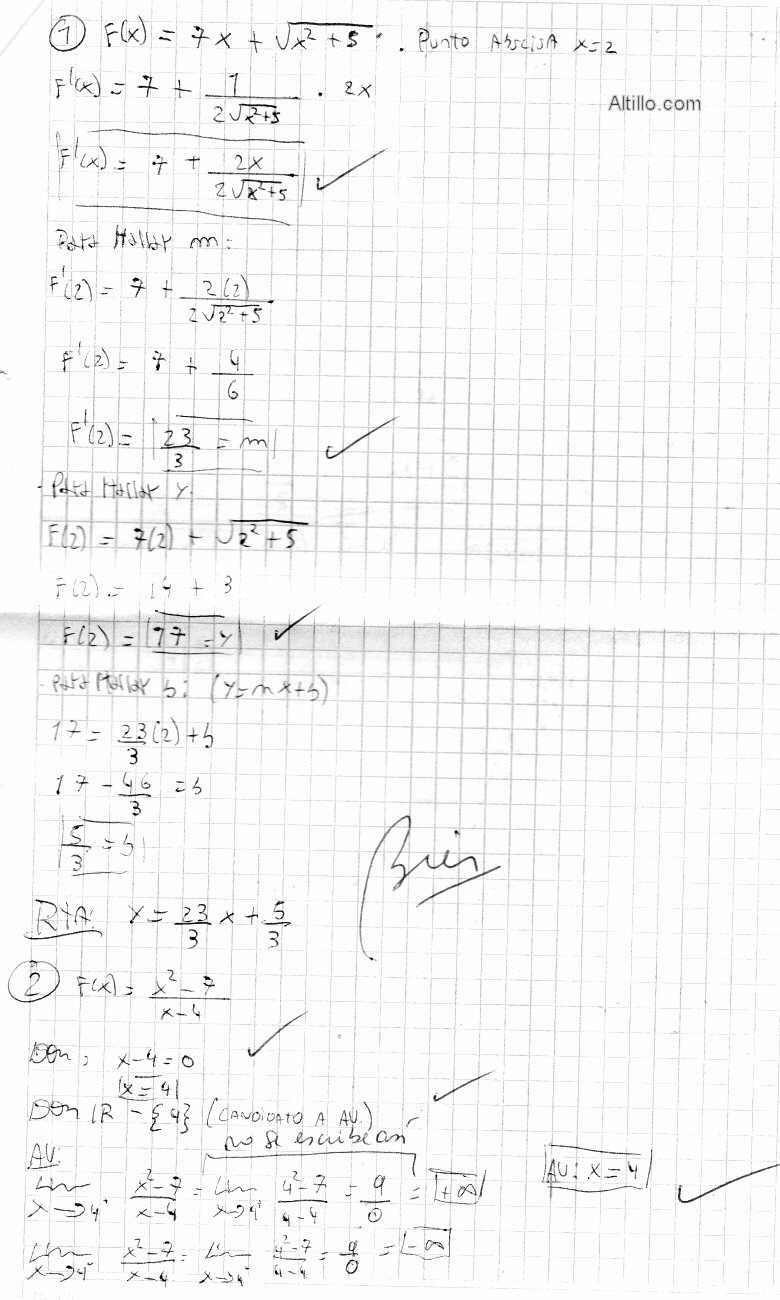 ① F(x) = 7x + √(x²+5) . Punto Abscisa x=2
Altillo.com
F'(x) = 7 + 1/(2√(x²+5)) . 2x
F'(x) = 7 + 2x/(2√(x²+5))
Para Hallar m:
F'(2) = 7 + 2(2)/(2√(2²+5))
F'(2) = 7 + 4/6
F'(2) = 23/3 = m
- Para Hallar y.
F(2) = 7(2) + √(2²+5)
F(2) = 14 + 3
F(2) = 17 = y
- Para Hallar b: (y=mx+b)
17 = 23/3(2)+b
17 - 46/3 = b
5/3 = b
Bien
RTA: y = 23/3 x + 5/3
② F(x) = (x²-7)/(x-4)
Dom: x-4=0
x=4
Dom IR - {4} (CANDIDATO A AV.)
no se escribe así
AV:
Lim x→4⁺ (x²-7)/(x-4) = Lim x→4⁺ (4²-7)/(4-4) = 9/0 = +∞
AV: x=4
Lim x→4⁻ (x²-7)/(x-4) = Lim x→4⁻ (4²-7)/(4-4) = 9/0 = -∞